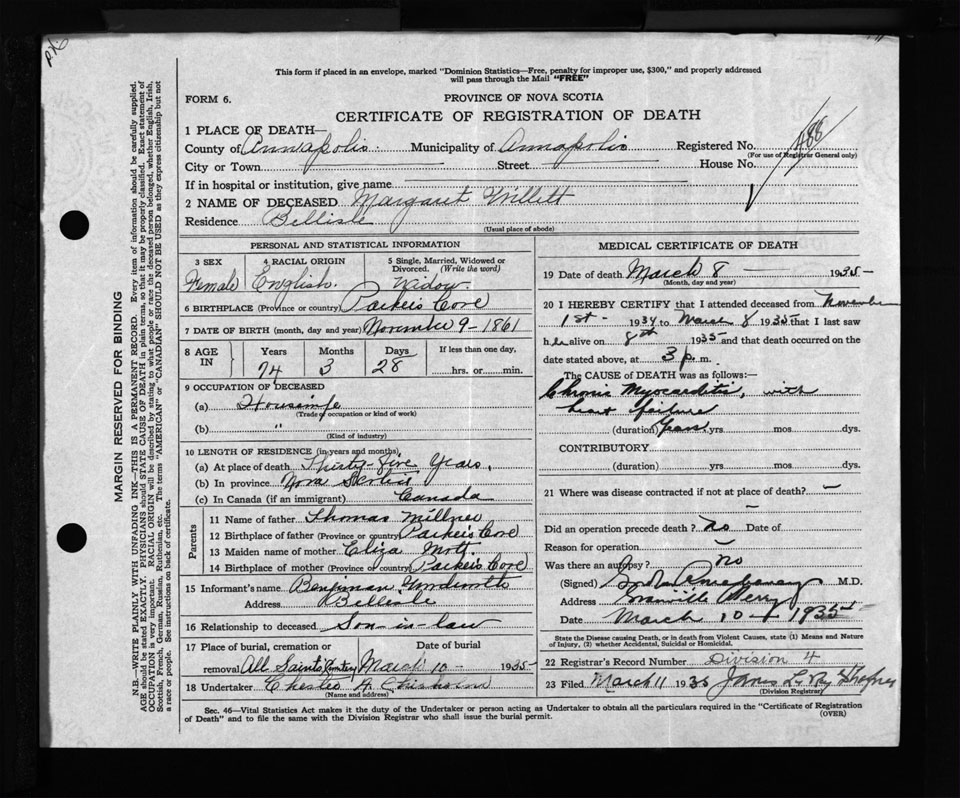 This form if placed in an envelope, marked "Dominion Statistics—Free, penalty for improper use, $300," and properly addressed
will pass through the Mail "FREE"
FORM 6.
PROVINCE OF NOVA SCOTIA
CERTIFICATE OF REGISTRATION OF DEATH
1 PLACE OF DEATH—
County of Annapolis Municipality of Annapolis Registered No. 488
(For use of Registrar General only)
City or Town Street House No.
If in hospital or institution, give name
2 NAME OF DECEASED Margaret Willett
Residence Bellisle
(Usual place of abode)
PERSONAL AND STATISTICAL INFORMATION
3 SEX 4 RACIAL ORIGIN 5 Single, Married, Widowed or
Divorced. (Write the word)
Female English. Widow.
6 BIRTHPLACE (Province or country) Parkers Cove
7 DATE OF BIRTH (month, day and year) November 9 - 1861
8 AGE IN Years Months Days If less than one day,
74 3 28 hrs. or min.
9 OCCUPATION OF DECEASED
(a) Housewife
(Trade, occupation or kind of work)
(b) "
(Kind of industry)
10 LENGTH OF RESIDENCE (in years and months)
(a) At place of death Thirty-five Years,
(b) In province Nova Scotia
(c) In Canada (if an immigrant) Canada
Parents
11 Name of father Thomas Millner
12 Birthplace of father (Province or country) Parkers Cove
13 Maiden name of mother Eliza Mott.
14 Birthplace of mother (Province or country) Parkers Cove
15 Informant's name Benjiman
Address Bellisle
16 Relationship to deceased Son-in-law
17 Place of burial, cremation or Date of burial
removal All Saints March 10 - 1935
18 Undertaker Chester A. Chisholm
(Name and address)
MEDICAL CERTIFICATE OF DEATH
19 Date of death March 8 — 1935
(Month, day and year)
20 I HEREBY CERTIFY that I attended deceased from November
1st - 1934 to March 8 1935 that I last saw
h er alive on 8th 1935 and that death occurred on the
date stated above, at 3 p. m.
The CAUSE OF DEATH was as follows:—
Chronic Myocarditis, with
heart failure
(duration) Years yrs. mos. dys.
CONTRIBUTORY
(duration) yrs. mos. dys.
21 Where was disease contracted if not at place of death? —
Did an operation precede death? no Date of —
Reason for operation —
Was there an autopsy? no
(Signed) M.D.
Address Granville Ferry
Date March 10 - 1935
State the Disease causing Death, or in death from Violent Causes, state (1) Means and Nature
of Injury, (2) whether Accidental, Suicidal or Homicidal.
22 Registrar's Record Number Division 4
23 Filed March 11 1935
(Division Registrar)
Sec. 46—Vital Statistics Act makes it the duty of the Undertaker or person acting as Undertaker to obtain all the particulars required in the "Certificate of Registration
of Death" and to file the same with the Division Registrar who shall issue the burial permit. (OVER)
MARGIN RESERVED FOR BINDING
N.B.—WRITE PLAINLY WITH UNFADING INK—THIS IS A PERMANENT RECORD. Every item of information should be carefully supplied.
AGE should be stated EXACTLY. PHYSICIANS should STATE CAUSE OF DEATH in plain terms, so that it may be properly classified. Exact statement of
OCCUPATION is very important. RACIAL ORIGIN will be described by stating to what people or race the deceased person belonged, whether English, Irish,
Scottish, French, German, Russian, Ruthenian, etc. The terms "AMERICAN" or "CANADIAN" SHOULD NOT BE USED as they express citizenship but not
a race or people. See instructions on back of certificate.